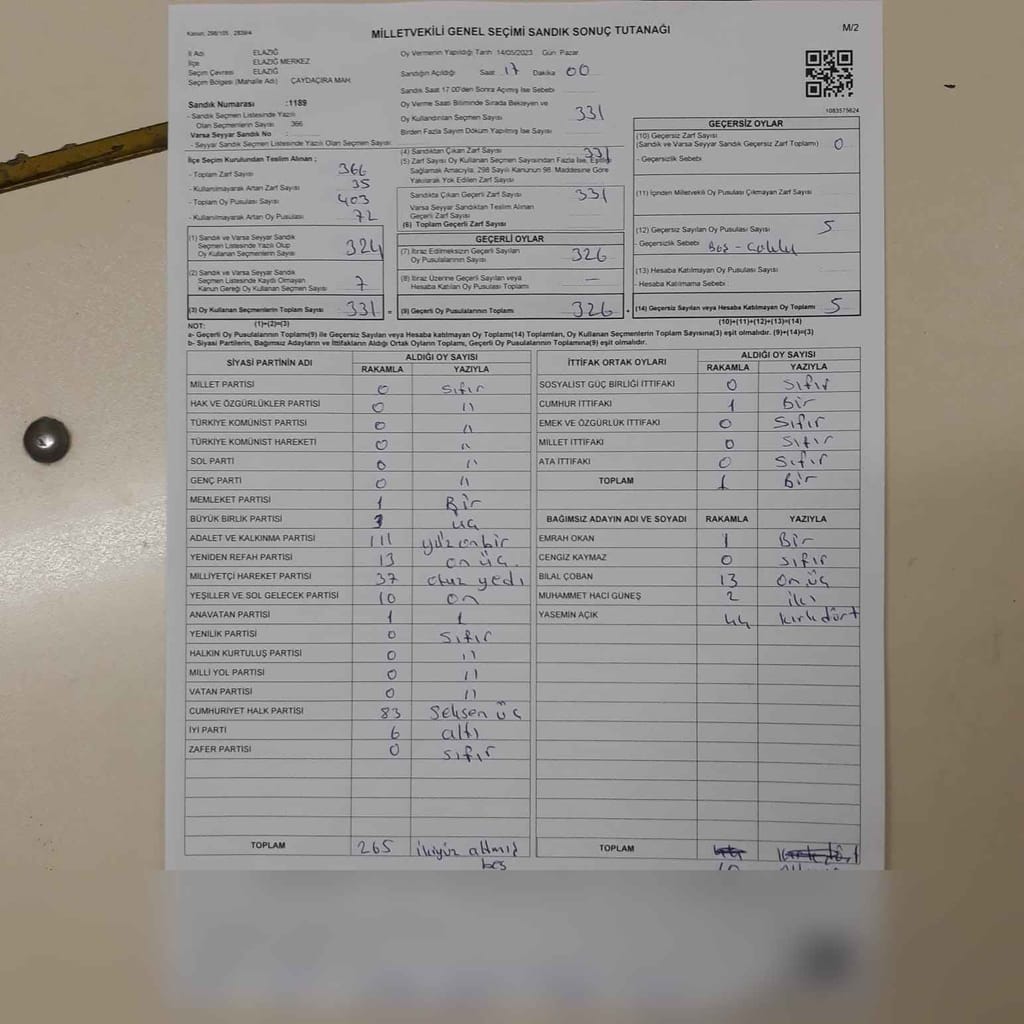 Kanun; 298/105 , 2839/4
MİLLETVEKİLİ GENEL SEÇİMİ SANDIK SONUÇ TUTANAĞI
M/2
İl Adı ELAZIĞ
İlçe ELAZIĞ MERKEZ
Seçim Çevresi ELAZIĞ
Seçim Bölgesi (Mahalle Adı) ÇAYDAÇIRA MAH.
Sandık Numarası :1189
- Sandık Seçmen Listesinde Yazılı
Olan Seçmenlerin Sayısı 366
Varsa Seyyar Sandık No :
- Seyyar Sandık Seçmen Listesinde Yazılı Olan Seçmen Sayısı
Oy Vermenin Yapıldığı Tarih 14/05/2023 Gün Pazar
Sandığın Açıldığı Saat 17 Dakika 00
Sandık Saat 17.00'den Sonra Açılmış İse Sebebi
Oy Verme Saati Bitiminde Sırada Bekleyen ve
Oy Kullandırılan Seçmen Sayısı 331
Birden Fazla Sayım Döküm Yapılmış İse Sayısı
1083575624
İlçe Seçim Kurulundan Teslim Alınan ;
- Toplam Zarf Sayısı 366
- Kullanılmayarak Artan Zarf Sayısı 35
- Toplam Oy Pusulası Sayısı 403
- Kullanılmayarak Artan Oy Pusulası 72
(1) Sandık ve Varsa Seyyar Sandık
Seçmen Listesinde Yazılı Olup
Oy Kullanan Seçmenlerin Sayısı 324
(2) Sandık ve Varsa Seyyar Sandık
Seçmen Listesinde Kaydı Olmayan
Kanun Gereği Oy Kullanan Seçmen Sayısı 7
(3) Oy Kullanan Seçmenlerin Toplam Sayısı 331
(4) Sandıktan Çıkan Zarf Sayısı 331
(5) Zarf Sayısı Oy Kullanan Seçmen Sayısından Fazla İse, Eşitliği
Sağlamak Amacıyla, 298 Sayılı Kanunun 98. Maddesine Göre
Yakılarak Yok Edilen Zarf Sayısı
Sandıkta Çıkan Geçerli Zarf Sayısı 331
Varsa Seyyar Sandıktan Teslim Alınan
Geçerli Zarf Sayısı
(6) Toplam Geçerli Zarf Sayısı
GEÇERLİ OYLAR
(7) İtiraz Edilmeksizin Geçerli Sayılan
Oy Pusulalarının Sayısı 326
(8) İtiraz Üzerine Geçerli Sayılan veya
Hesaba Katılan Oy Pusulası Toplamı —
(9) Geçerli Oy Pusulalarının Toplamı 326
GEÇERSİZ OYLAR
(10) Geçersiz Zarf Sayısı
(Sandık ve Varsa Seyyar Sandık Geçersiz Zarf Toplamı) 0
- Geçersizlik Sebebi
(11) İçinden Milletvekili Oy Pusulası Çıkmayan Zarf Sayısı
(12) Geçersiz Sayılan Oy Pusulası Sayısı 5
- Geçersizlik Sebebi Boş -
(13) Hesaba Katılmayan Oy Pusulası Sayısı
- Hesaba Katılmama Sebebi
(14) Geçersiz Sayılan veya Hesaba Katılmayan Oy Toplamı 5
NOT: (1)+(2)=(3) (10)+(11)+(12)+(13)=(14)
a- Geçerli Oy Pusulalarının Toplamı(9) ile Geçersiz Sayılan veya Hesaba katılmayan Oy Toplamı(14) Toplamları, Oy Kullanan Seçmenlerin Toplam Sayısına(3) eşit olmalıdır. (9)+(14)=(3)
b- Siyasi Partilerin, Bağımsız Adayların ve İttifakların Aldığı Ortak Oyların Toplamı, Geçerli Oy Pusulalarının Toplamına(9) eşit olmalıdır.
SİYASİ PARTİNİN ADI ALDIĞI OY SAYISI
RAKAMLA YAZIYLA
MİLLET PARTİSİ 0 sıfır
HAK VE ÖZGÜRLÜKLER PARTİSİ 0 11
TÜRKİYE KOMÜNİST PARTİSİ 0 11
TÜRKİYE KOMÜNİST HAREKETİ 0 11
SOL PARTİ 0 11
GENÇ PARTİ 0 11
MEMLEKET PARTİSİ 1 Bir
BÜYÜK BİRLİK PARTİSİ 3 üç
ADALET VE KALKINMA PARTİSİ 111 yüzonbir
YENİDEN REFAH PARTİSİ 13 on üç
MİLLİYETÇİ HAREKET PARTİSİ 37 otuz yedi
YEŞİLLER VE SOL GELECEK PARTİSİ 10 on
ANAVATAN PARTİSİ 1 1
YENİLİK PARTİSİ 0 sıfır
HALKIN KURTULUŞ PARTİSİ 0 11
MİLLİ YOL PARTİSİ 0 11
VATAN PARTİSİ 0 11
CUMHURİYET HALK PARTİSİ 83 Seksen üç
İYİ PARTİ 6 altı
ZAFER PARTİSİ 0 sıfır
TOPLAM 265 ikiyüz altmış
beş
İTTİFAK ORTAK OYLARI ALDIĞI OY SAYISI
RAKAMLA YAZIYLA
SOSYALİST GÜÇ BİRLİĞİ İTTİFAKI 0 sıfır
CUMHUR İTTİFAKI 1 Bir
EMEK VE ÖZGÜRLÜK İTTİFAKI 0 Sıfır
MİLLET İTTİFAKI 0 Sıfır
ATA İTTİFAKI 0 Sıfır
TOPLAM 1 Bir
BAĞIMSIZ ADAYIN ADI VE SOYADI RAKAMLA YAZIYLA
EMRAH OKAN 1 Bir
CENGİZ KAYMAZ 0 sıfır
BİLAL ÇOBAN 13 on üç
MUHAMMET HACI GÜNEŞ 2 iki
YASEMİN AÇIK 44 kırkdört
TOPLAM